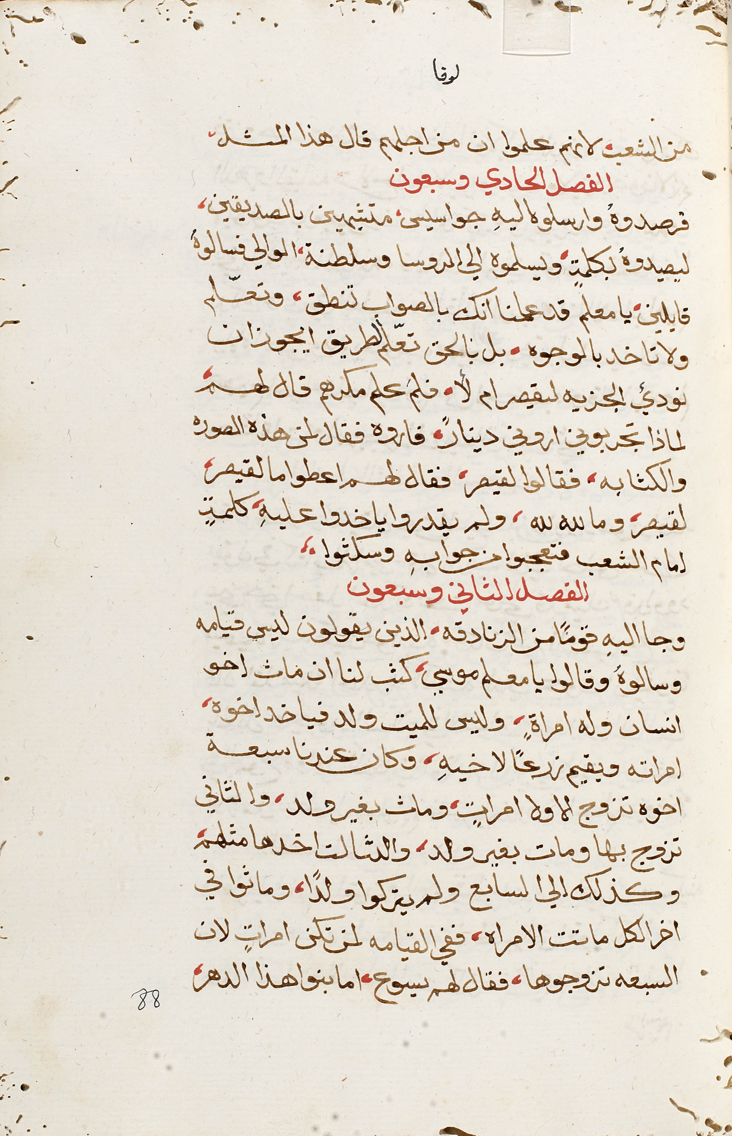 لوقا
من الشعب، لانهم علموا ان من اجلهم قال هذا المثل
الفصل الحادي وسبعون
فرصدوهُ وارسلوه اليهِ جواسيس، متشبهين بالصديقين،
ليصيدوهُ بكلمتٍ، ويسلموه الي الروسا وسلطنة، الوالي فسالوهُ
قايلين، يا معلم قد علمنا انك بالصواب تنطق، وتعّلم
ولا تاخد بالوجوه، بل بالحق تعّلم طريق ايجوز ان
نودي الجزيه لقيصر ام لا، فلم علم مكرهم قال لهم،
لماذا تجربوني اروني دينارً، فاروه فقال لمن هذه الصوره
والكتابه، فقالوا لقيصر، فقال لهم اعطوا ما لقيصر،
لقيصر، وما لله لله، ولم يقدروا ياخدوا عليهِ، كلمتٍ
امام الشعب فتعجبوا من جوابهِ وسكتوا،
الفصل الثاني وسبعون
وجا اليهِ قومًا من الزنادقه، الذين يقولون ليس قيامه
وسالوهُ وقالوا يا معلم موسي، كتب لنا ان مات اخو
انسان وله امراةٍ، وليس للميت ولد فياخد اخوه،
امراته ويقيم زرعًا لاخيهِ، وكان عندنا سبعة
اخوه تزوج الاولا امراتٍ، ومات بغير ولد، والثاني
تزوج بها ومات بغير ولد، والثالت اخدها مثلهم،
وكذلك الي السابع ولم يتركوا ولدًا، وماتوا في
اخر الكل ماتت الامراه، ففي القيامه لمن تكن امراتٍ لان
السبعه تزوجوها، فقال لهم يسوع، اما بنوا هذا الدهر،
88